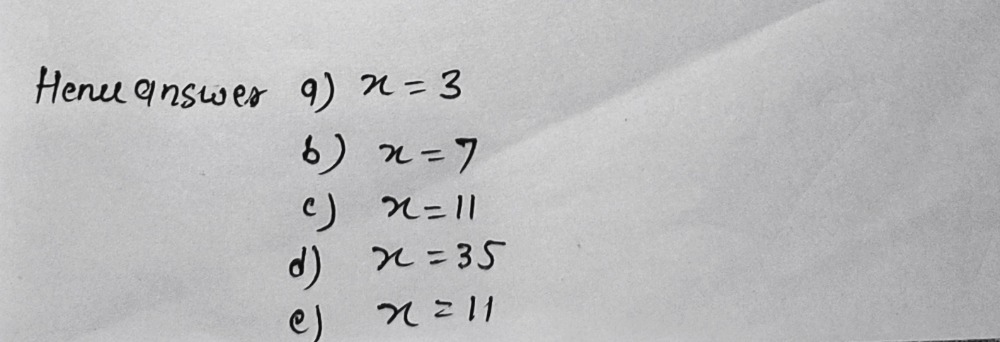 Hence answer a) x = 3
b) x = 7
c) x = 11
d) x = 35
e) x = 11